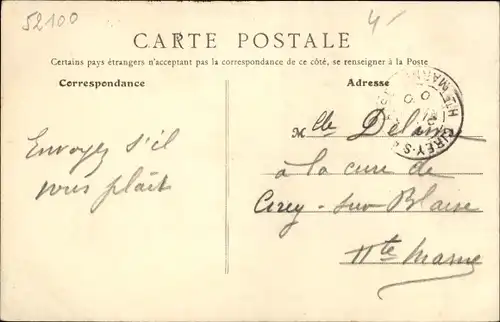 52100
4-
CARTE POSTALE
Certains pays étrangers n'acceptant pas la correspondance de ce côté, se renseigner à la Poste
Correspondance
Adresse
CIREY-S
Hte MARNE
Envoyez s'il
vous plait
Mlle
à la cure de
Cirey-sur-Blaise
Hte Marne